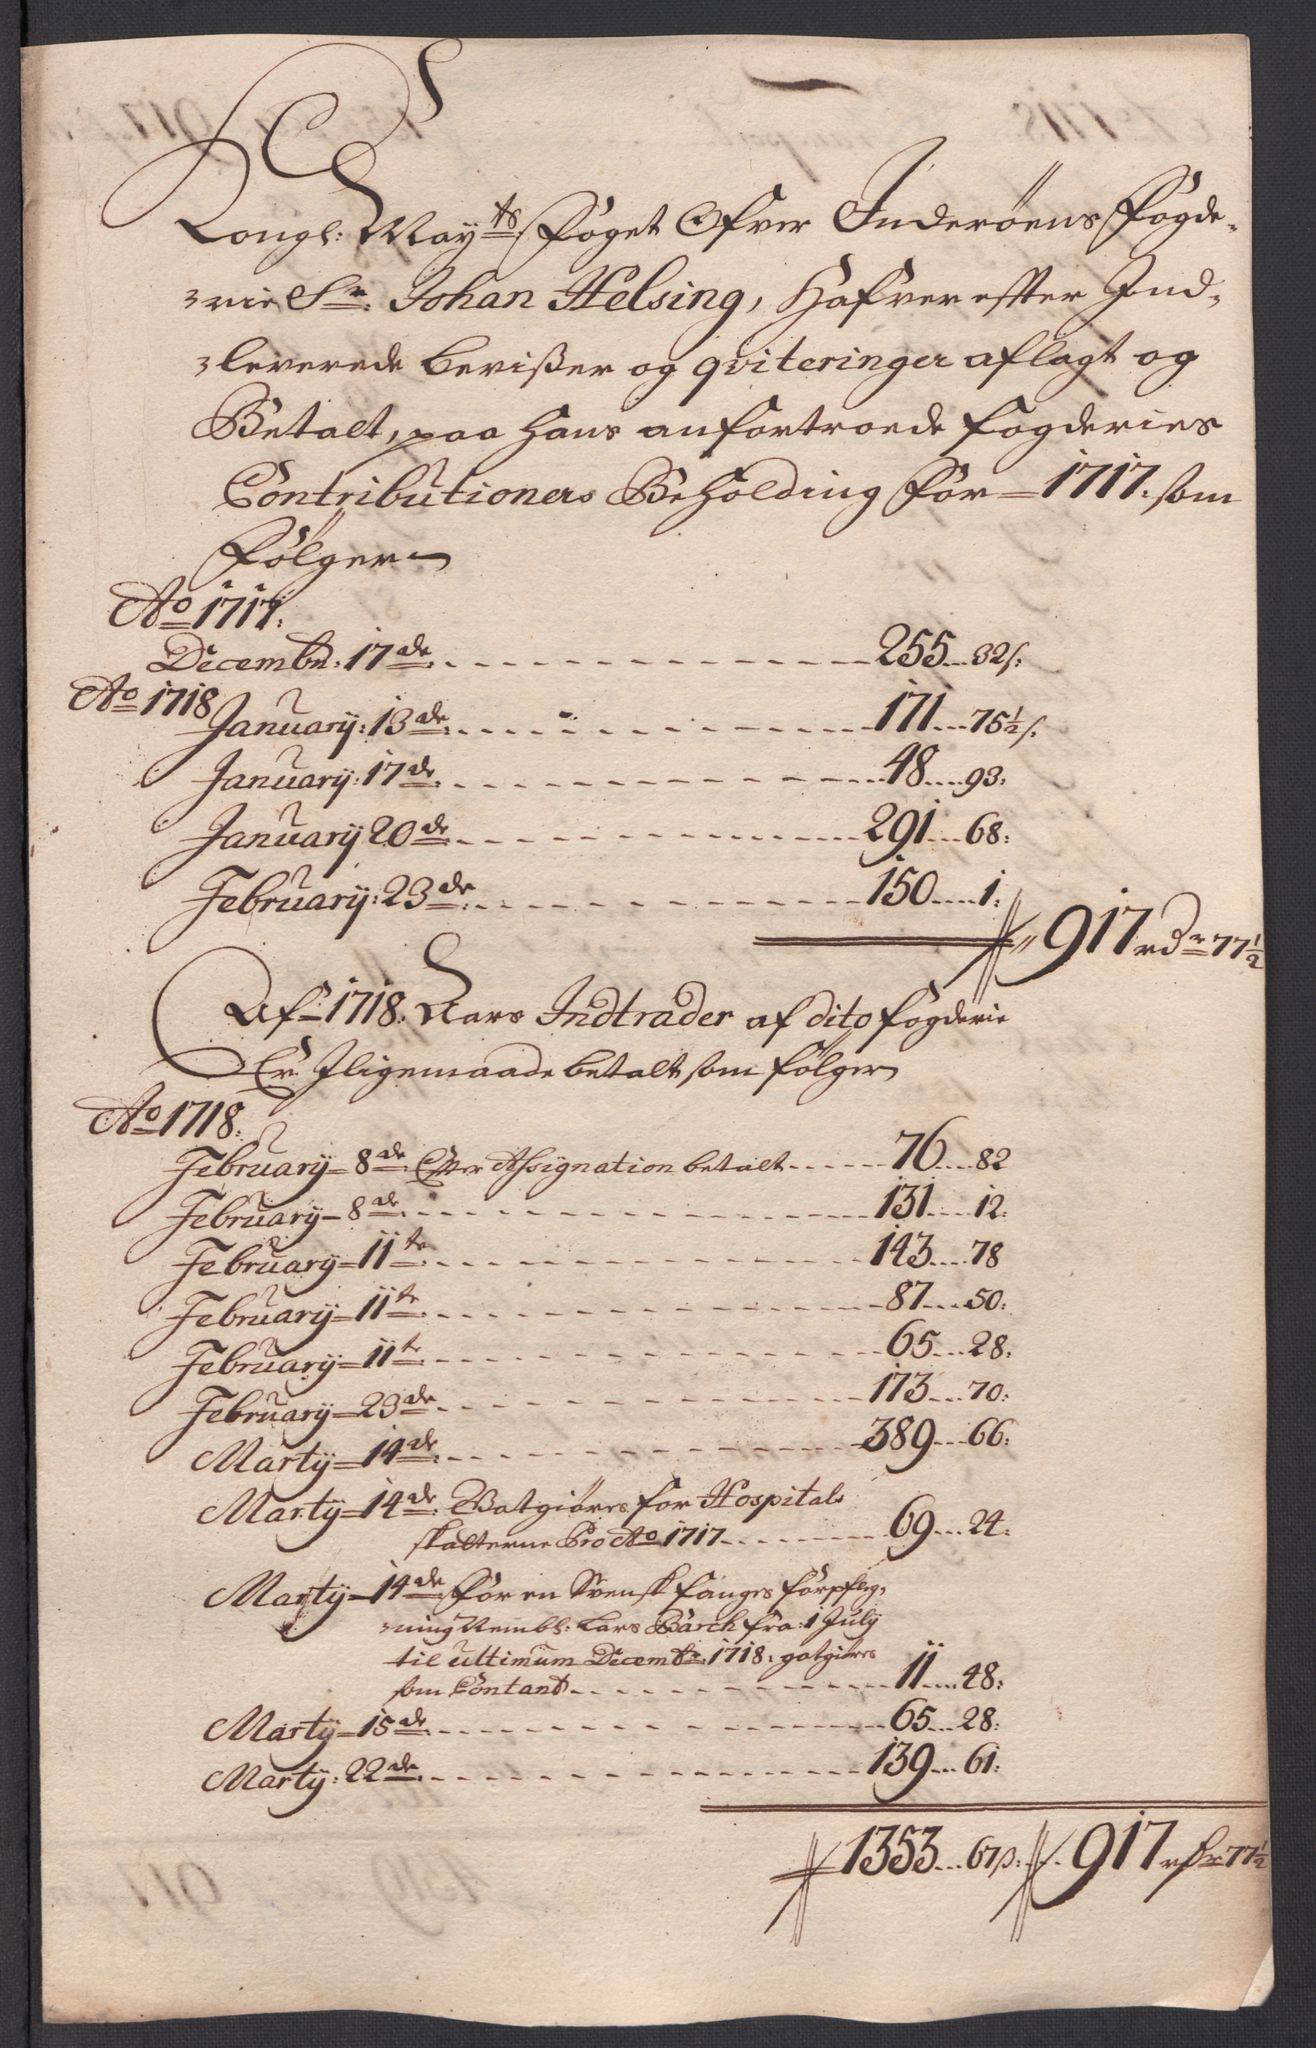 Kongl: May:ts Foget Ofver Inderöens Fogde-
rie Sr. Johan Helsing, Hafver effter Ind-
leverede bevißer og qviteringer aflagt og
Betalt, paa hans anfortroede fogderies
Contributioners Beholding för 1717. som
fölger
Ao 1717:
Decembr: 17de 255 32s:
Ao 1718
January: 13de 171 75½ s:
January: 17de 48 93:
January 20de 291 68:
February: 23de 150 1:
917 rdr 77½
Af 1718. Aars Indtrader af dito fogderie
Er Iligemaade betalt som fölger
Ao 1718:
February 8de Effter Assignation betalt 76 82
February 8de 131 12:
February 11te 143 78
February 11te 87 50:
February 11te 65 28:
February 23de 173 70:
Marty 14de 389 66:
Marty 14de Gotgiöres for Hospitals
skatterne Pro Ao 1717 69 24:
Marty 14de För en Svensk fanges förpfleg-
ning Nembl: Lars Barch fra: 1 July
til ultimum Decembr: 1718: gotgiöres
som Contant 11 48:
Marty 15de 65 28:
Marty: 22de 139 61:
1353 67s: 917 rdr 77½